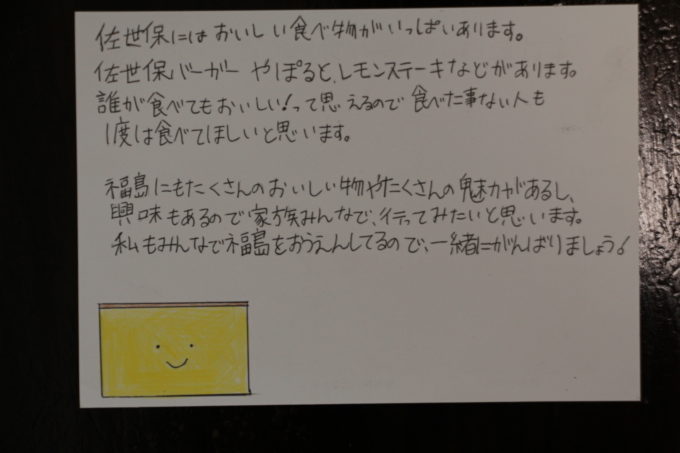 佐世保にはおいしい食べ物がいっぱいあります。
佐世保バーガーやぽると、レモンステーキなどがあります。
誰が食べてもおいしい！って思えるので食べた事ない人も
1度は食べてほしいと思います。
福島にもたくさんのおいしい物やたくさんの魅力があるし、
興味もあるので家族みんなで、行ってみたいと思います。
私もみんなで福島をおうえんしてるので、一緒にがんばりましょう！